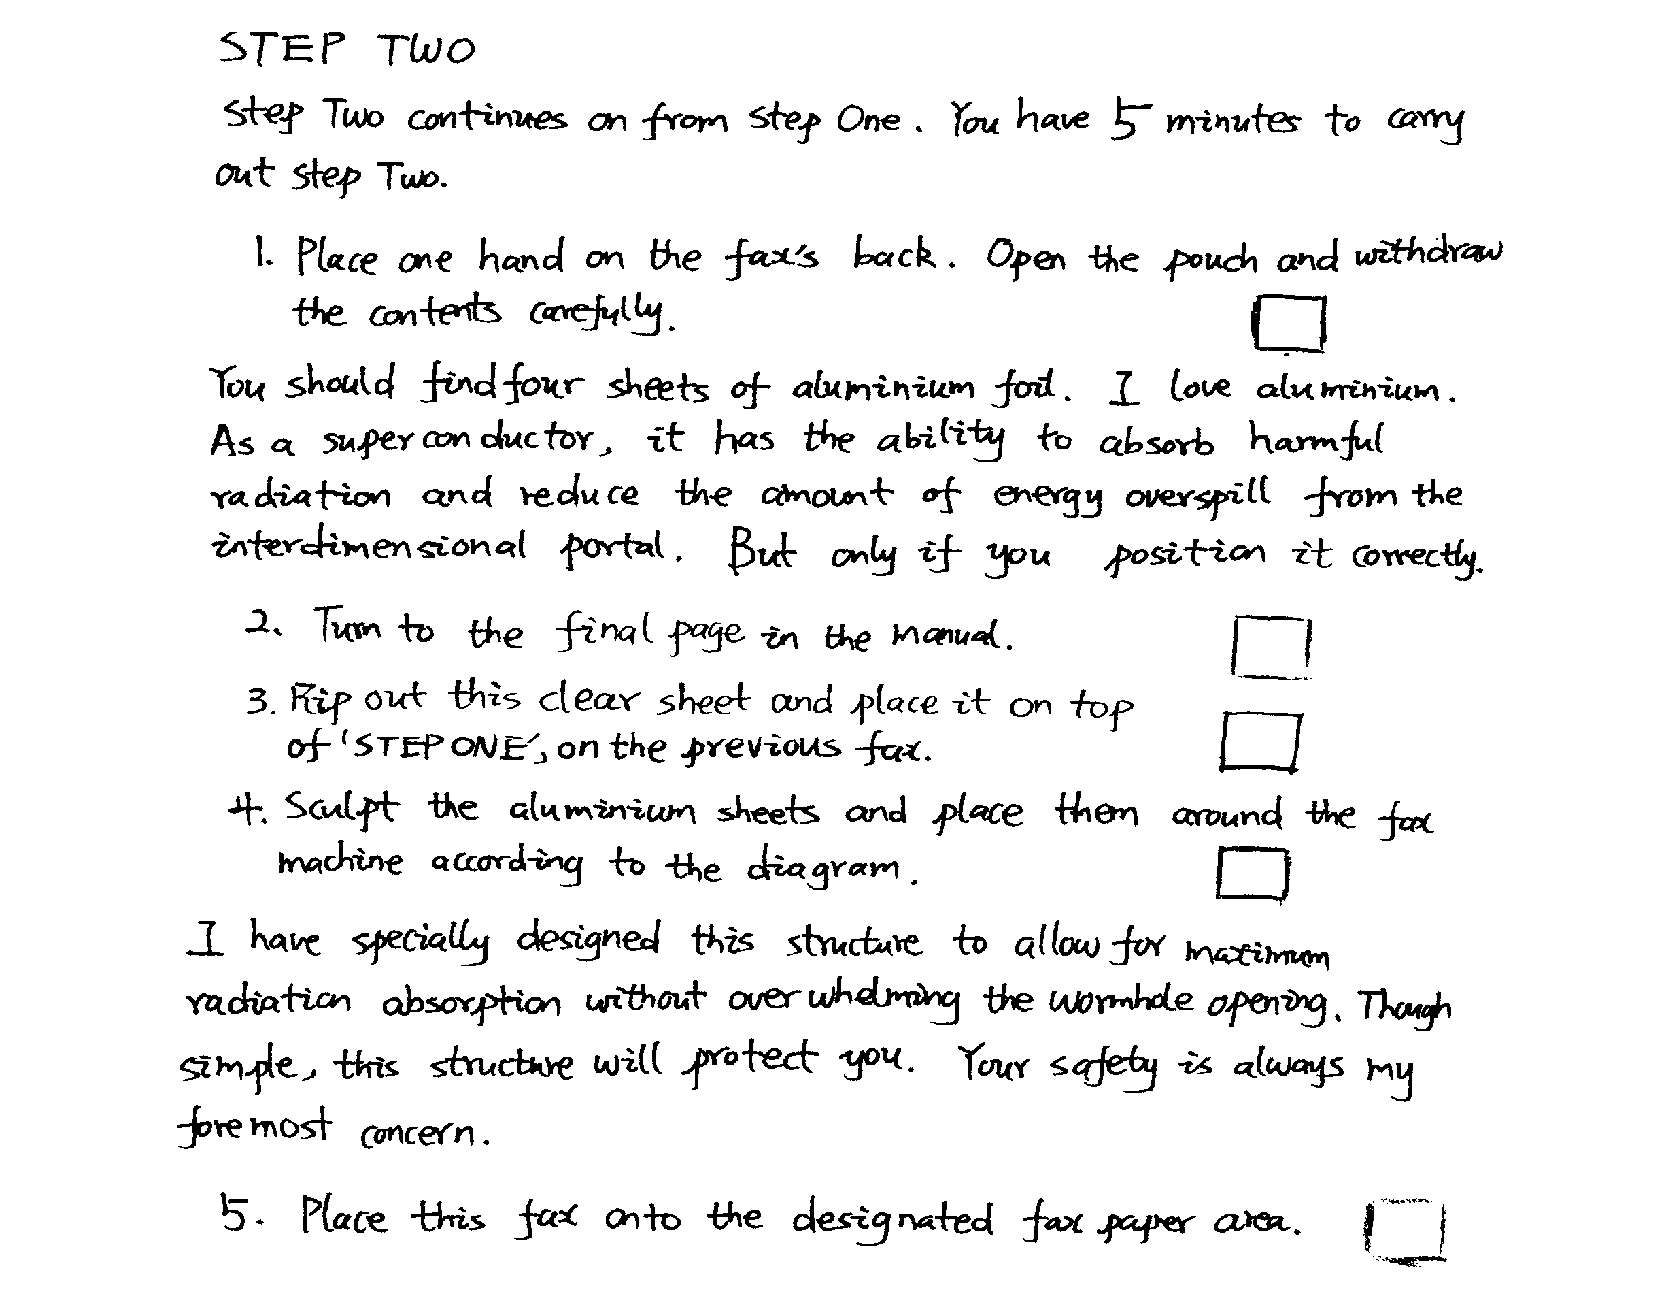 STEP TWO
Step Two continues on from Step One. You have 5 minutes to carry
out step Two.
1. Place one hand on the fax's back. Open the pouch and withdraw
the contents carefully.
You should find four sheets of aluminium foil. I love aluminium.
As a superconductor, it has the ability to absorb harmful
radiation and reduce the amount of energy overspill from the
interdimensional portal. But only if you position it correctly.
2. Turn to the final page in the manual.
3. Rip out this clear sheet and place it on top
of 'STEP ONE', on the previous fax.
4. Sculpt the aluminium sheets and place them around the fax
machine according to the diagram.
I have specially designed this structure to allow for maximum
radiation absorption without overwhelming the wormhole opening. Though
simple, this structure will protect you. Your safety is always my
foremost concern.
5. Place this fax onto the designated fax paper area.